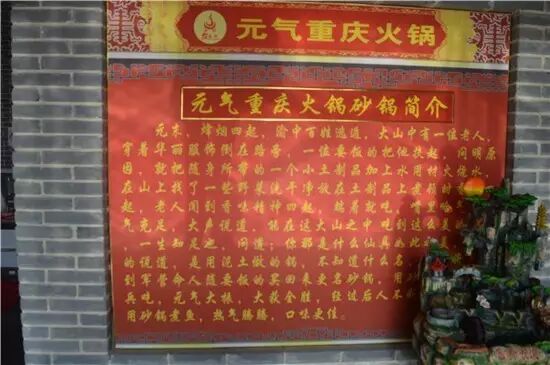 元气重庆火锅
元气重庆火锅砂锅简介
元末,烽烟四起,渝中百姓逃道,大山中有一位老人,
穿着华丽服饰倒在路旁,一位要饭的把他扶起,问明原
因,就把随身所带的一个小土制品加上水用材火烧水,
在山上找了一些野菜洗干净放在土制品上煮
起,老人闻到香味精神四起,端着就吃,嘴里
气充足,大声说道,能在这大山之中吃到这么美
一生知足也,问道:你那是什么仙具
的说道,是用泥土做的锅,不知道什么名
到军营命人随要饭的买回来更名砂锅,用
兵吃,元气大振,大获全胜,经过后人不
用砂锅煮鱼,热气腾腾,口味更佳。